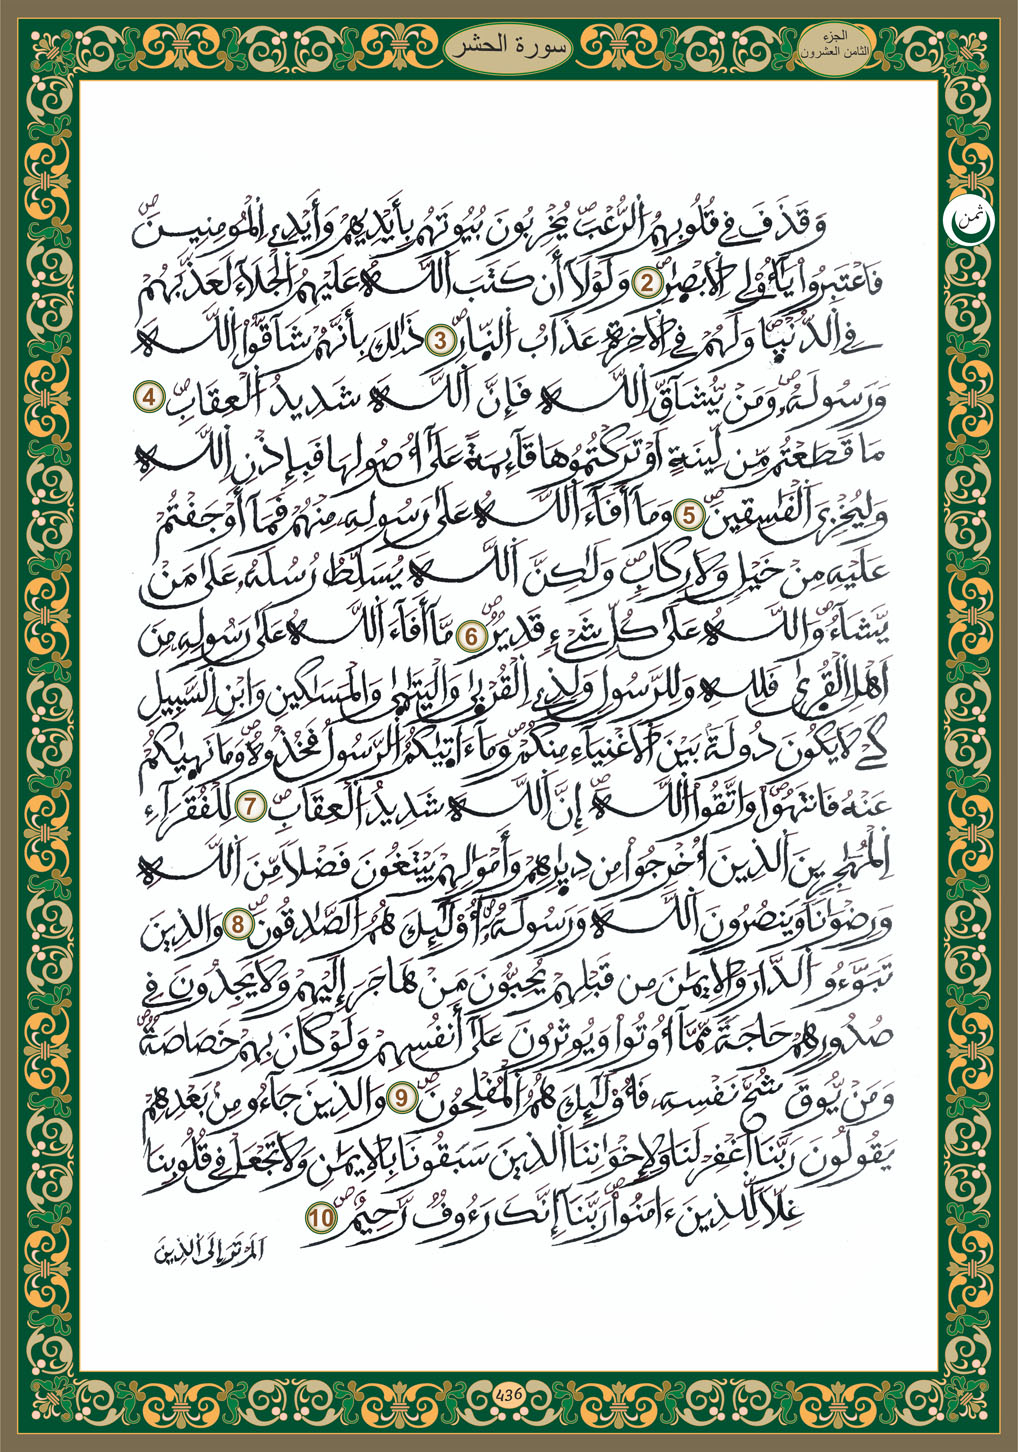 سورة الحشر
الجزء
الثامن العشرون
ثمن
وَقَذَفَ فِے قُلُوبِهِمُ اُ۬لرُّعْبَۖ يُخْرِبُونَ بُيُوتَهُم بِأَيْدِيهِمْ وَأَيْدِے اِ۬لْمُومِنِينَۖ
فَاعْتَبِرُواْ يَٰٓأُوْلِے اِ۬لَابْصٰ۪رِۖ 2 وَلَوْلَآ أَن كَتَبَ اَ۬للَّهُ عَلَيْهِمُ اُ۬لْجَلَآءَ لَعَذَّبَهُمْ
فِے اِ۬لدُّنْي۪اۖ وَلَهُمْ فِے اِ۬لَاخِرَةِ عَذَابُ اُ۬لنّ۪ارِۖ 3 ذَٰلِكَ بِأَنَّهُمْ شَآقُّواْ اُ۬للَّهَ
وَرَسُولَهُۥۖ وَمَنْ يُّشَآقِّ اِ۬للَّهَ فَإِنَّ اَ۬للَّهَ شَدِيدُ اُ۬لْعِقَابِۖ 4
مَا قَطَعْتُم مِّن لِّينَةٍ اَوْ تَرَكْتُمُوهَا قَآئِمَةً عَلَىٰٓ أُصُولِهَا فَبِإِذْنِ اِ۬للَّهِ
وَلِيُخْزِيَ اَ۬لْفَٰسِقِينَۖ 5 وَمَآ أَفَآءَ اَ۬للَّهُ عَلَىٰ رَسُولِهِۦ مِنْهُمْ فَمَآ أَوْجَفْتُمْ
عَلَيْهِ مِنْ خَيْلٖ وَلَا رِكَابٖۖ وَلَٰكِنَّ اَ۬للَّهَ يُسَلِّطُ رُسُلَهُۥ عَلَىٰ مَنْ
يَّشَآءُۖ وَاللَّهُ عَلَىٰ كُلِّ شَےْءٖ قَدِيرٞۖ 6 مَّآ أَفَآءَ اَ۬للَّهُ عَلَىٰ رَسُولِهِۦ مِنَ
اَهْلِ اِ۬لْقُر۪ىٰ فَلِلهِ وَلِلرَّسُولِ وَلِذِے اِ۬لْقُرْب۪ىٰ وَالْيَتَٰم۪ىٰ وَالْمَسَٰكِينِ وَابْنِ اِ۬لسَّبِيلِ
كَےْ لَا يَكُونَ دُولَةَۢ بَيْنَ اَ۬لَاغْنِيَآءِ مِنكُمْۖ وَمَآ ءَات۪يٰكُمُ اُ۬لرَّسُولُ فَخُذُوهُۖ وَمَا نَه۪يٰكُمْ
عَنْهُ فَانتَهُواْۖ وَاتَّقُواْ اُ۬للَّهَۖ إِنَّ اَ۬للَّهَ شَدِيدُ اُ۬لْعِقَابِۖ 7 لِلْفُقَرَآءِ
اِ۬لْمُهَٰجِرِينَ اَ۬لذِينَ أُخْرِجُواْ مِن دِيٰ۪رِهِمْ وَأَمْوَٰلِهِمْ يَبْتَغُونَ فَضْلاٗ مِّنَ اَ۬للَّهِ
وَرِضْوَٰناٗ وَيَنصُرُونَ اَ۬للَّهَ وَرَسُولَهُۥٓۖ أُوْلَٰٓئِكَ هُمُ اُ۬لصَّٰدِقُونَۖ 8 وَالذِينَ
تَبَوَّءُو اُ۬لدَّارَ وَالِايمَٰنَ مِن قَبْلِهِمْ يُحِبُّونَ مَنْ هَاجَرَ إِلَيْهِمْ وَلَا يَجِدُونَ فِے
صُدُورِهِمْ حَاجَةٗ مِّمَّآ أُوتُواْ وَيُوثِرُونَ عَلَىٰٓ أَنفُسِهِمْ وَلَوْ كَانَ بِهِمْ خَصَاصَةٞۖ
وَمَنْ يُّوقَ شُحَّ نَفْسِهِۦ فَأُوْلَٰٓئِكَ هُمُ اُ۬لْمُفْلِحُونَۖ 9 وَالذِينَ جَآءُو مِنۢ بَعْدِهِمْ
يَقُولُونَ رَبَّنَا اَ۪غْفِرْ لَنَا وَلِإِخْوَٰنِنَا اَ۬لذِينَ سَبَقُونَا بِالِايمَٰنِ وَلَا تَجْعَلْ فِے قُلُوبِنَا
غِلّاٗ لِّلذِينَ ءَامَنُواْۖ رَبَّنَآ إِنَّكَ رَءُوفٞ رَّحِيمٌۖ 10
اَلَمْ تَرَ إِلَى اَ۬لذِينَ
436